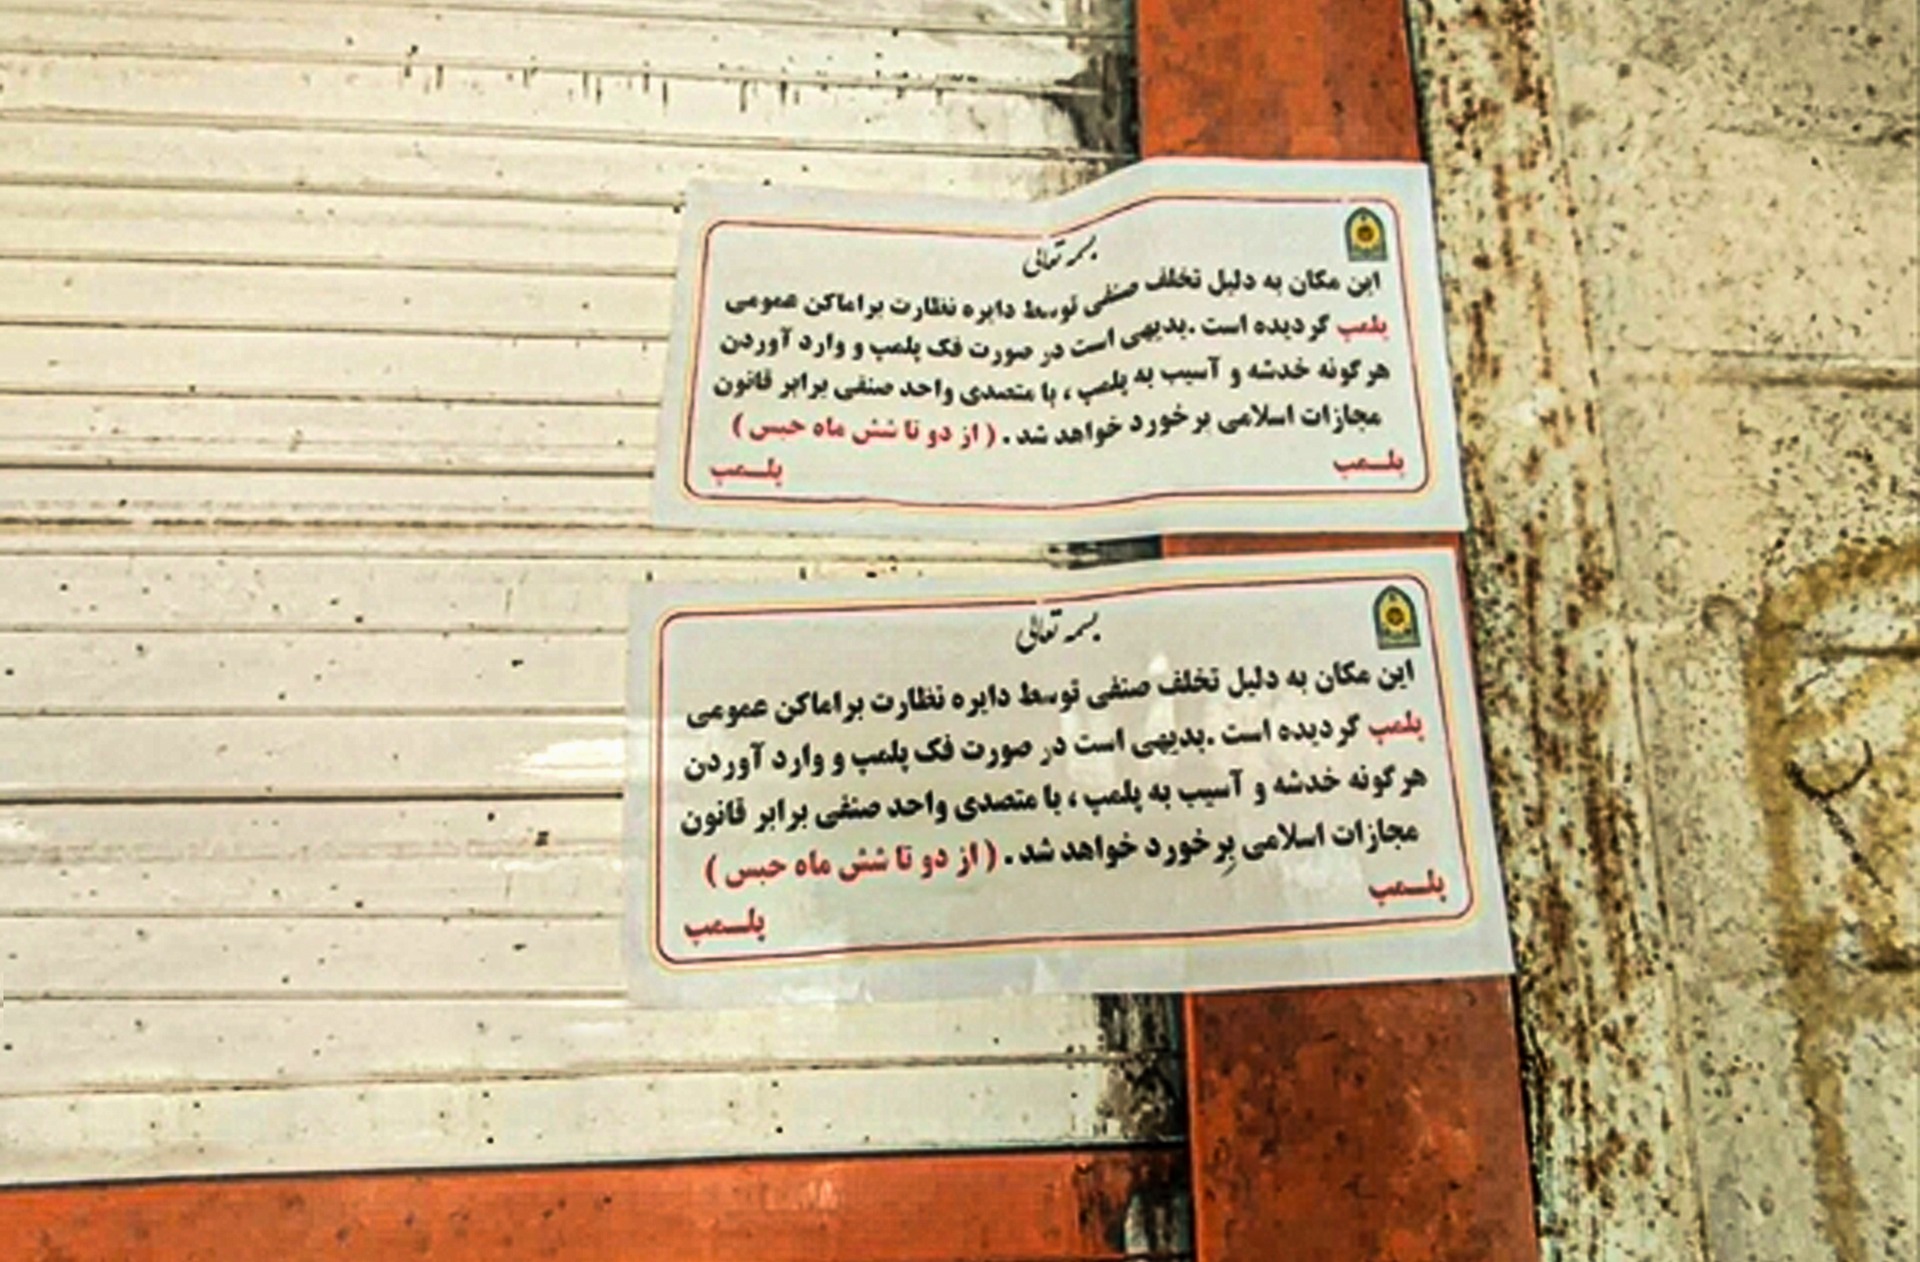 بسمه تعالی
این مکان به دلیل تخلف صنفی توسط دایره نظارت براماکن عمومی
پلمپ گردیده است .بدیهی است در صورت فک پلمپ و وارد آوردن
هرگونه خدشه و آسیب به پلمپ ، با متصدی واحد صنفی برابر قانون
مجازات اسلامی برخورد خواهد شد . ( از دو تا شش ماه حبس )
پلـــمپ پلـــمپ
بسمه تعالی
این مکان به دلیل تخلف صنفی توسط دایره نظارت براماکن عمومی
پلمپ گردیده است .بدیهی است در صورت فک پلمپ و وارد آوردن
هرگونه خدشه و آسیب به پلمپ ، با متصدی واحد صنفی برابر قانون
مجازات اسلامی برخورد خواهد شد . ( از دو تا شش ماه حبس )
پلـــمپ پلـــمپ